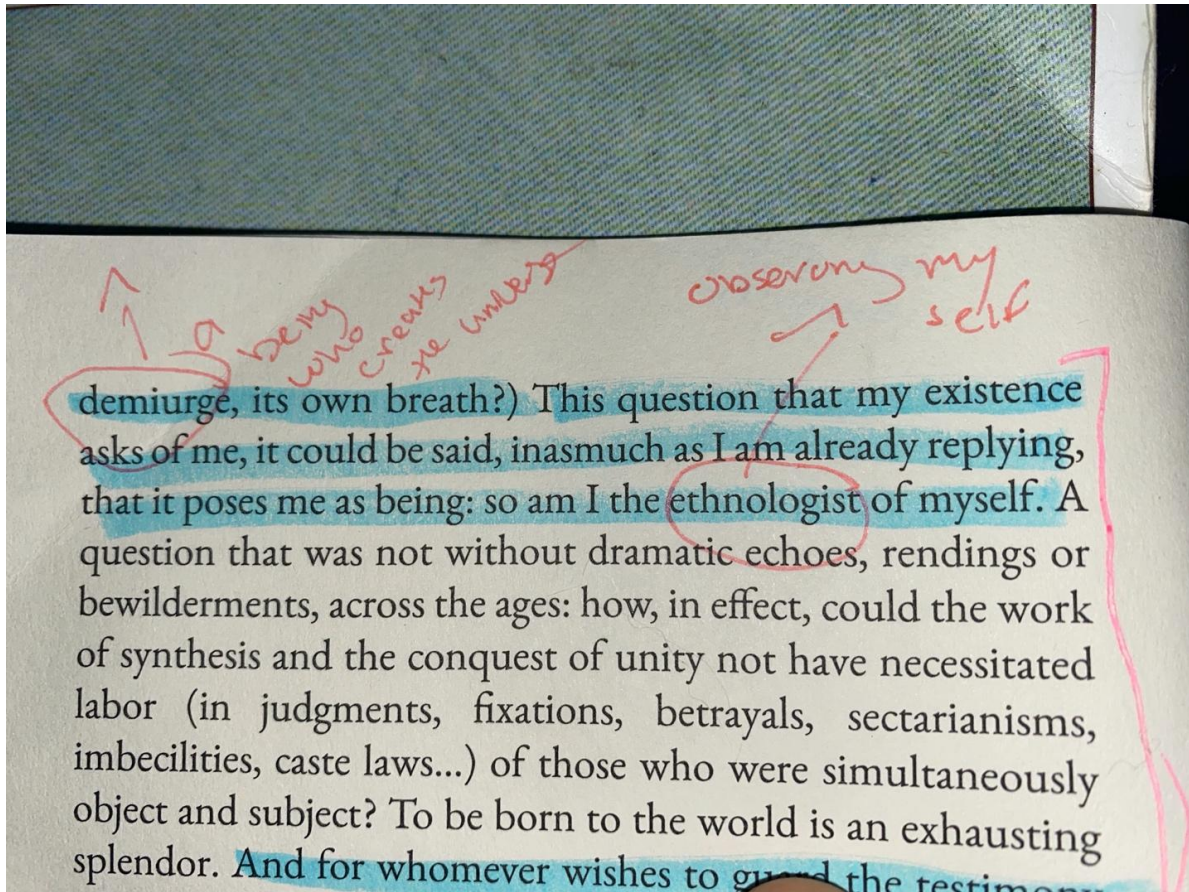 a being
who
creates
the univers
observing my
self
demiurge, its own breath?) This question that my existence
asks of me, it could be said, inasmuch as I am already replying,
that it poses me as being: so am I the ethnologist of myself. A
question that was not without dramatic echoes, rendings or
bewilderments, across the ages: how, in effect, could the work
of synthesis and the conquest of unity not have necessitated
labor (in judgments, fixations, betrayals, sectarianisms,
imbecilities, caste laws...) of those who were simultaneously
object and subject? To be born to the world is an exhausting
splendor. And for whomever wishes to guard the